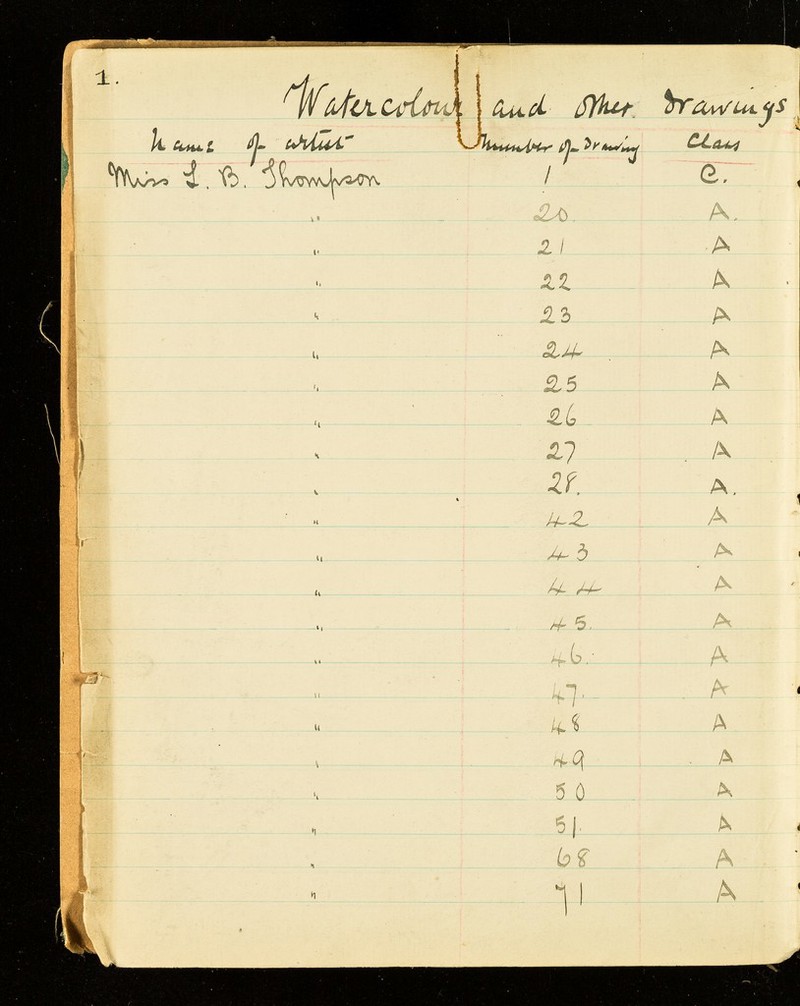 1.
Watercolour and other drawings
Name of artist Number of Drawing Class
Miss L. B. Thompson 1 C.
" 20 A.
" 21 A
" 22 A
" 23 A
" 24 A
" 25 A
" 26 A
" 27 A
" 28. A.
" 42 A
" 43 A
" 44 A
" 45. A
" 46. A
" 47. A
" 48 A
" 49 A
" 50 A
" 51. A
" 68 A
" 71 A